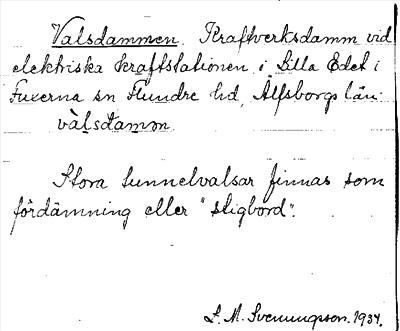 Valsdammen. Kraftverksdamm vid
elektriska kraftstationen i Lilla Edet i
Fuxerna sn Flundre hd, Älfsborgs län.
vàlsdamən
Stora tunnelvalsar finnas som
fördämning eller "stigbord".
L. M. Svenungsson. 1934.